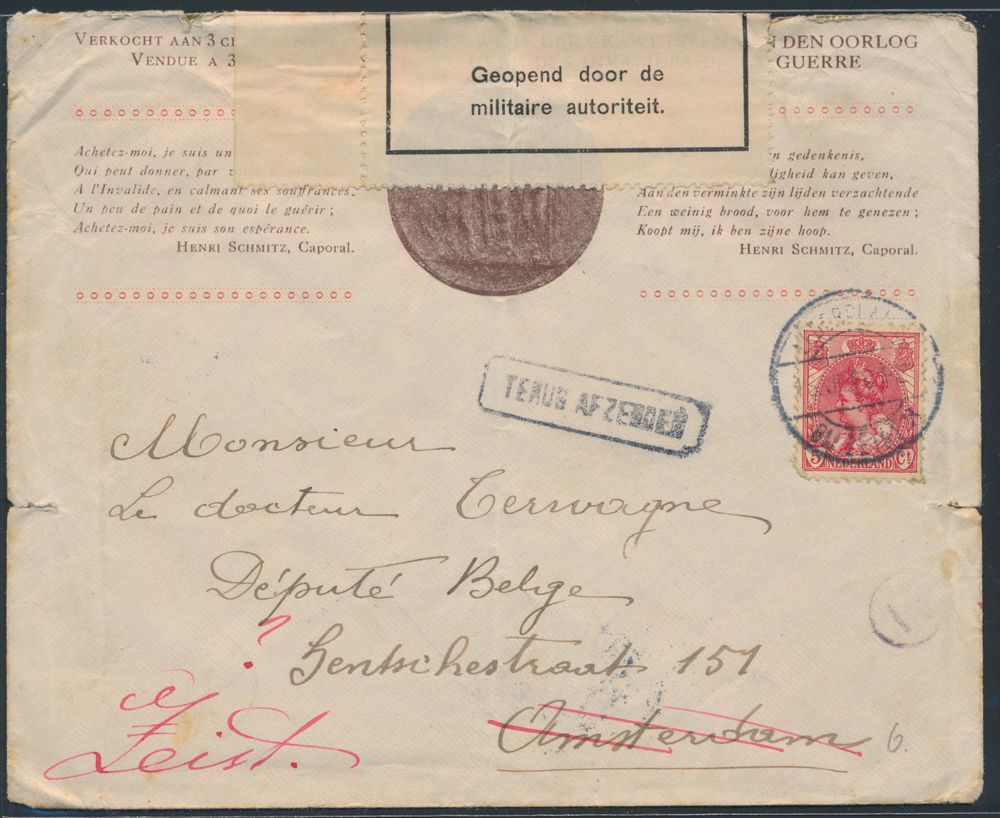 VERKOCHT AAN 3
VENDUE A 3
N DEN OORLOG
GUERRE
Geopend door de
militaire autoriteit.
Achetez-moi, je suis un
Qui peut donner, par
A l'Invalide, en calmant ses souffrances.
Un peu de pain et de quoi le guérir ;
Achetez-moi, je suis son espérance.
HENRI SCHMITZ, Caporal.
n gedenkenis,
ligheid kan geven,
Aan den verminkte zijn lijden verzachtende
Een weinig brood, voor hem te genezen ;
Koopt mij, ik ben zijne hoop.
HENRI SCHMITZ, Caporal.
TERUG AFZENDER
5 NEDERLAND Ct
Monsieur
Le docteur Terwagne
Député Belge
? Gentschestraat 151
Amsterdam
Zeist.
1
6.